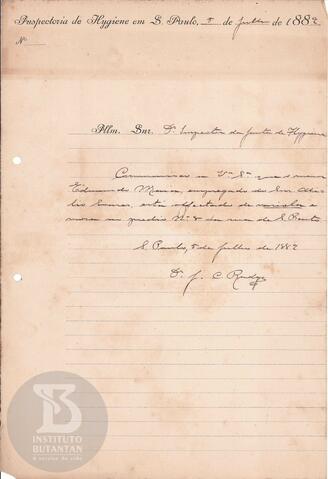 Inspectoria de Hygiene em S. Paulo, 8 de Julho de 1889
Nº
Illm. Snr. Dr. Inspector da Junta de Hygiene
Communico a Vª Sª que o menor
Eduardo empregado do Snr.
está affectado de variola e
mora no predio Nº 8 da rua de S. Bento
S. Paulo, 8 de Julho de 1889
Dr. J. C. Rudge
INSTITUTO
BUTANTAN
A serviço da vida